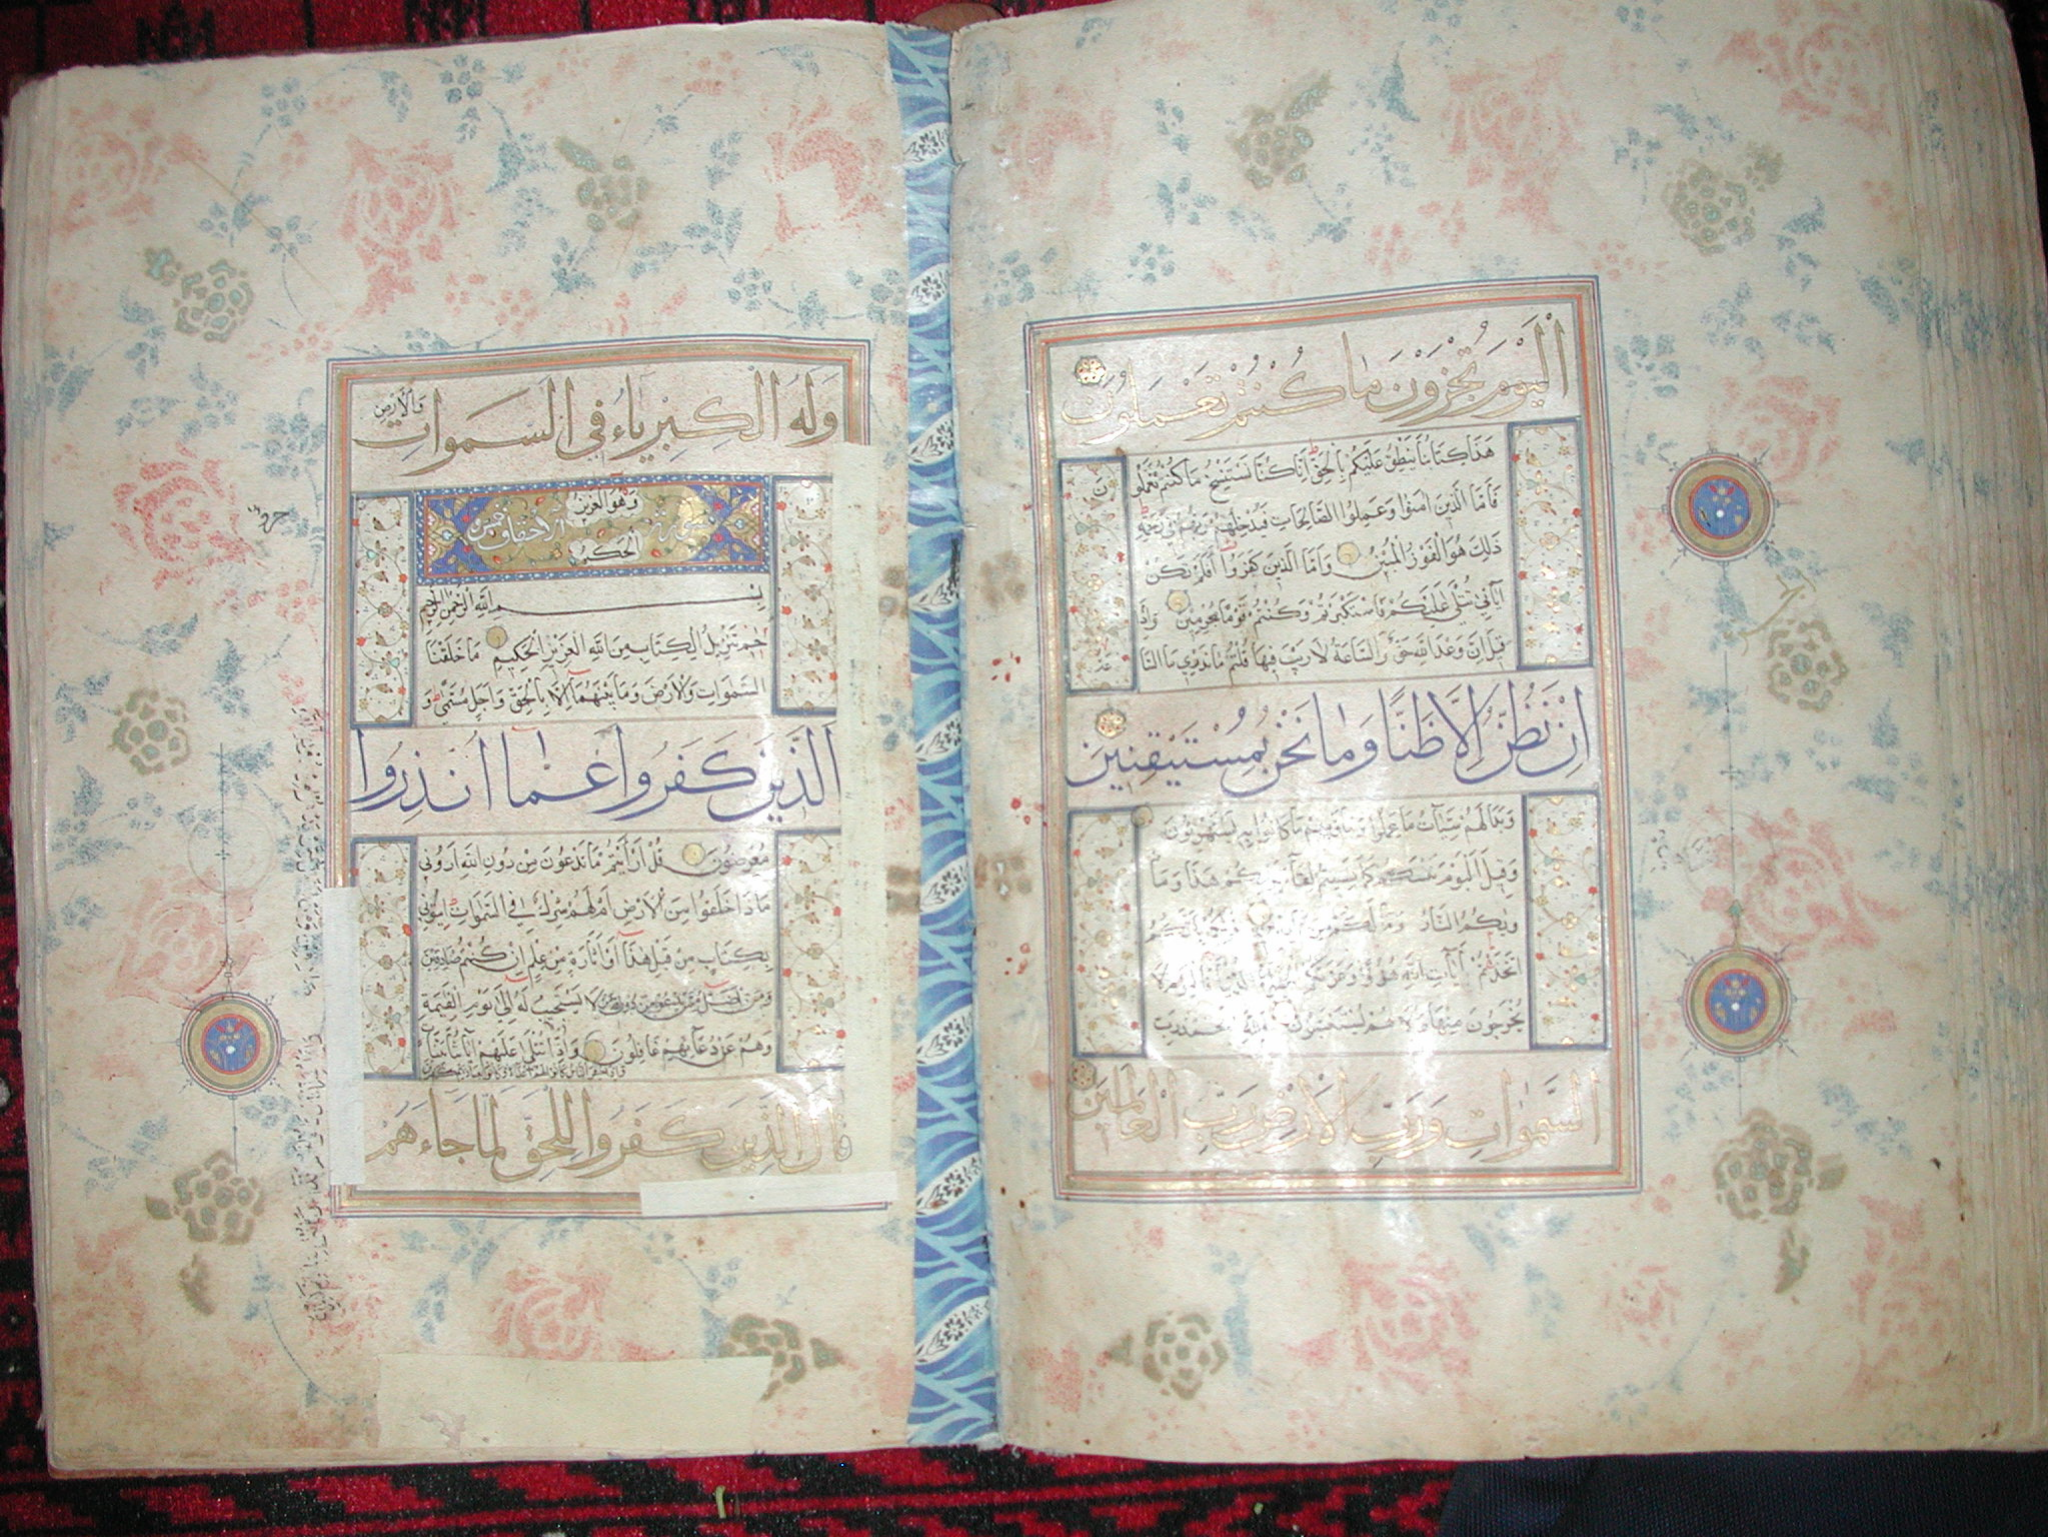 اليوم تجزون ما كنتم تعملون
هذا كتابنا ينطق عليكم بالحق انا كنا نستنسخ ما كنتم تعملو
ن
فاما الذين امنوا وعملوا الصالحات فيدخلهم ربهم في رحمته
ذلك هو الفوز المبين واما الذين كفروا افلم تكن
اياتي تتلى عليكم فاستكبرتم وكنتم قوما مجرمين واذا
قيل ان وعد الله حق والساعة لا ريب فيها قلتم ما ندري ما السا
عة
ان نظن الا ظنا وما نحن بمستيقنين
وبدا لهم سيئات ما عملوا وحاق بهم ما كانوا به يستهزؤن
وقيل اليوم ننسيكم كما نسيتم لقاء يومكم هذا وما
ويكم النار وما لكم من ناصرين ذلكم بانكم
اتخذتم ايات الله هزوا وغرتكم الحيوة الدنيا فاليوم لا
يخرجون منها ولا هم يستعتبون فلله الحمد رب
السموات ورب الارض رب العالمين
وله الكبرياء في السموات والارض
وهو العزيز
سورة الاحقاف خمس
الحكيم
بسم الله الرحمن الرحيم
حم تنزيل الكتاب من الله العزيز الحكيم ما خلقنا
السموات والارض وما بينهما الا بالحق واجل مسمى و
الذين كفروا عما انذروا
معرضون قل ارأيتم ما تدعون من دون الله اروني
ماذا خلقوا من الارض ام لهم شرك في السموات ايتوني
بكتاب من قبل هذا او اثارة من علم ان كنتم صادقين
ومن اضل ممن يدعو من دون الله من لا يستجيب له الى يوم القيمة
وهم عن دعائهم غافلون واذا تتلى عليهم اياتنا بينات
واذا حشر الناس كانوا لهم اعداء وكانوا بعبادتهم كافرين
قال الذين كفروا للحق لما جاءهم